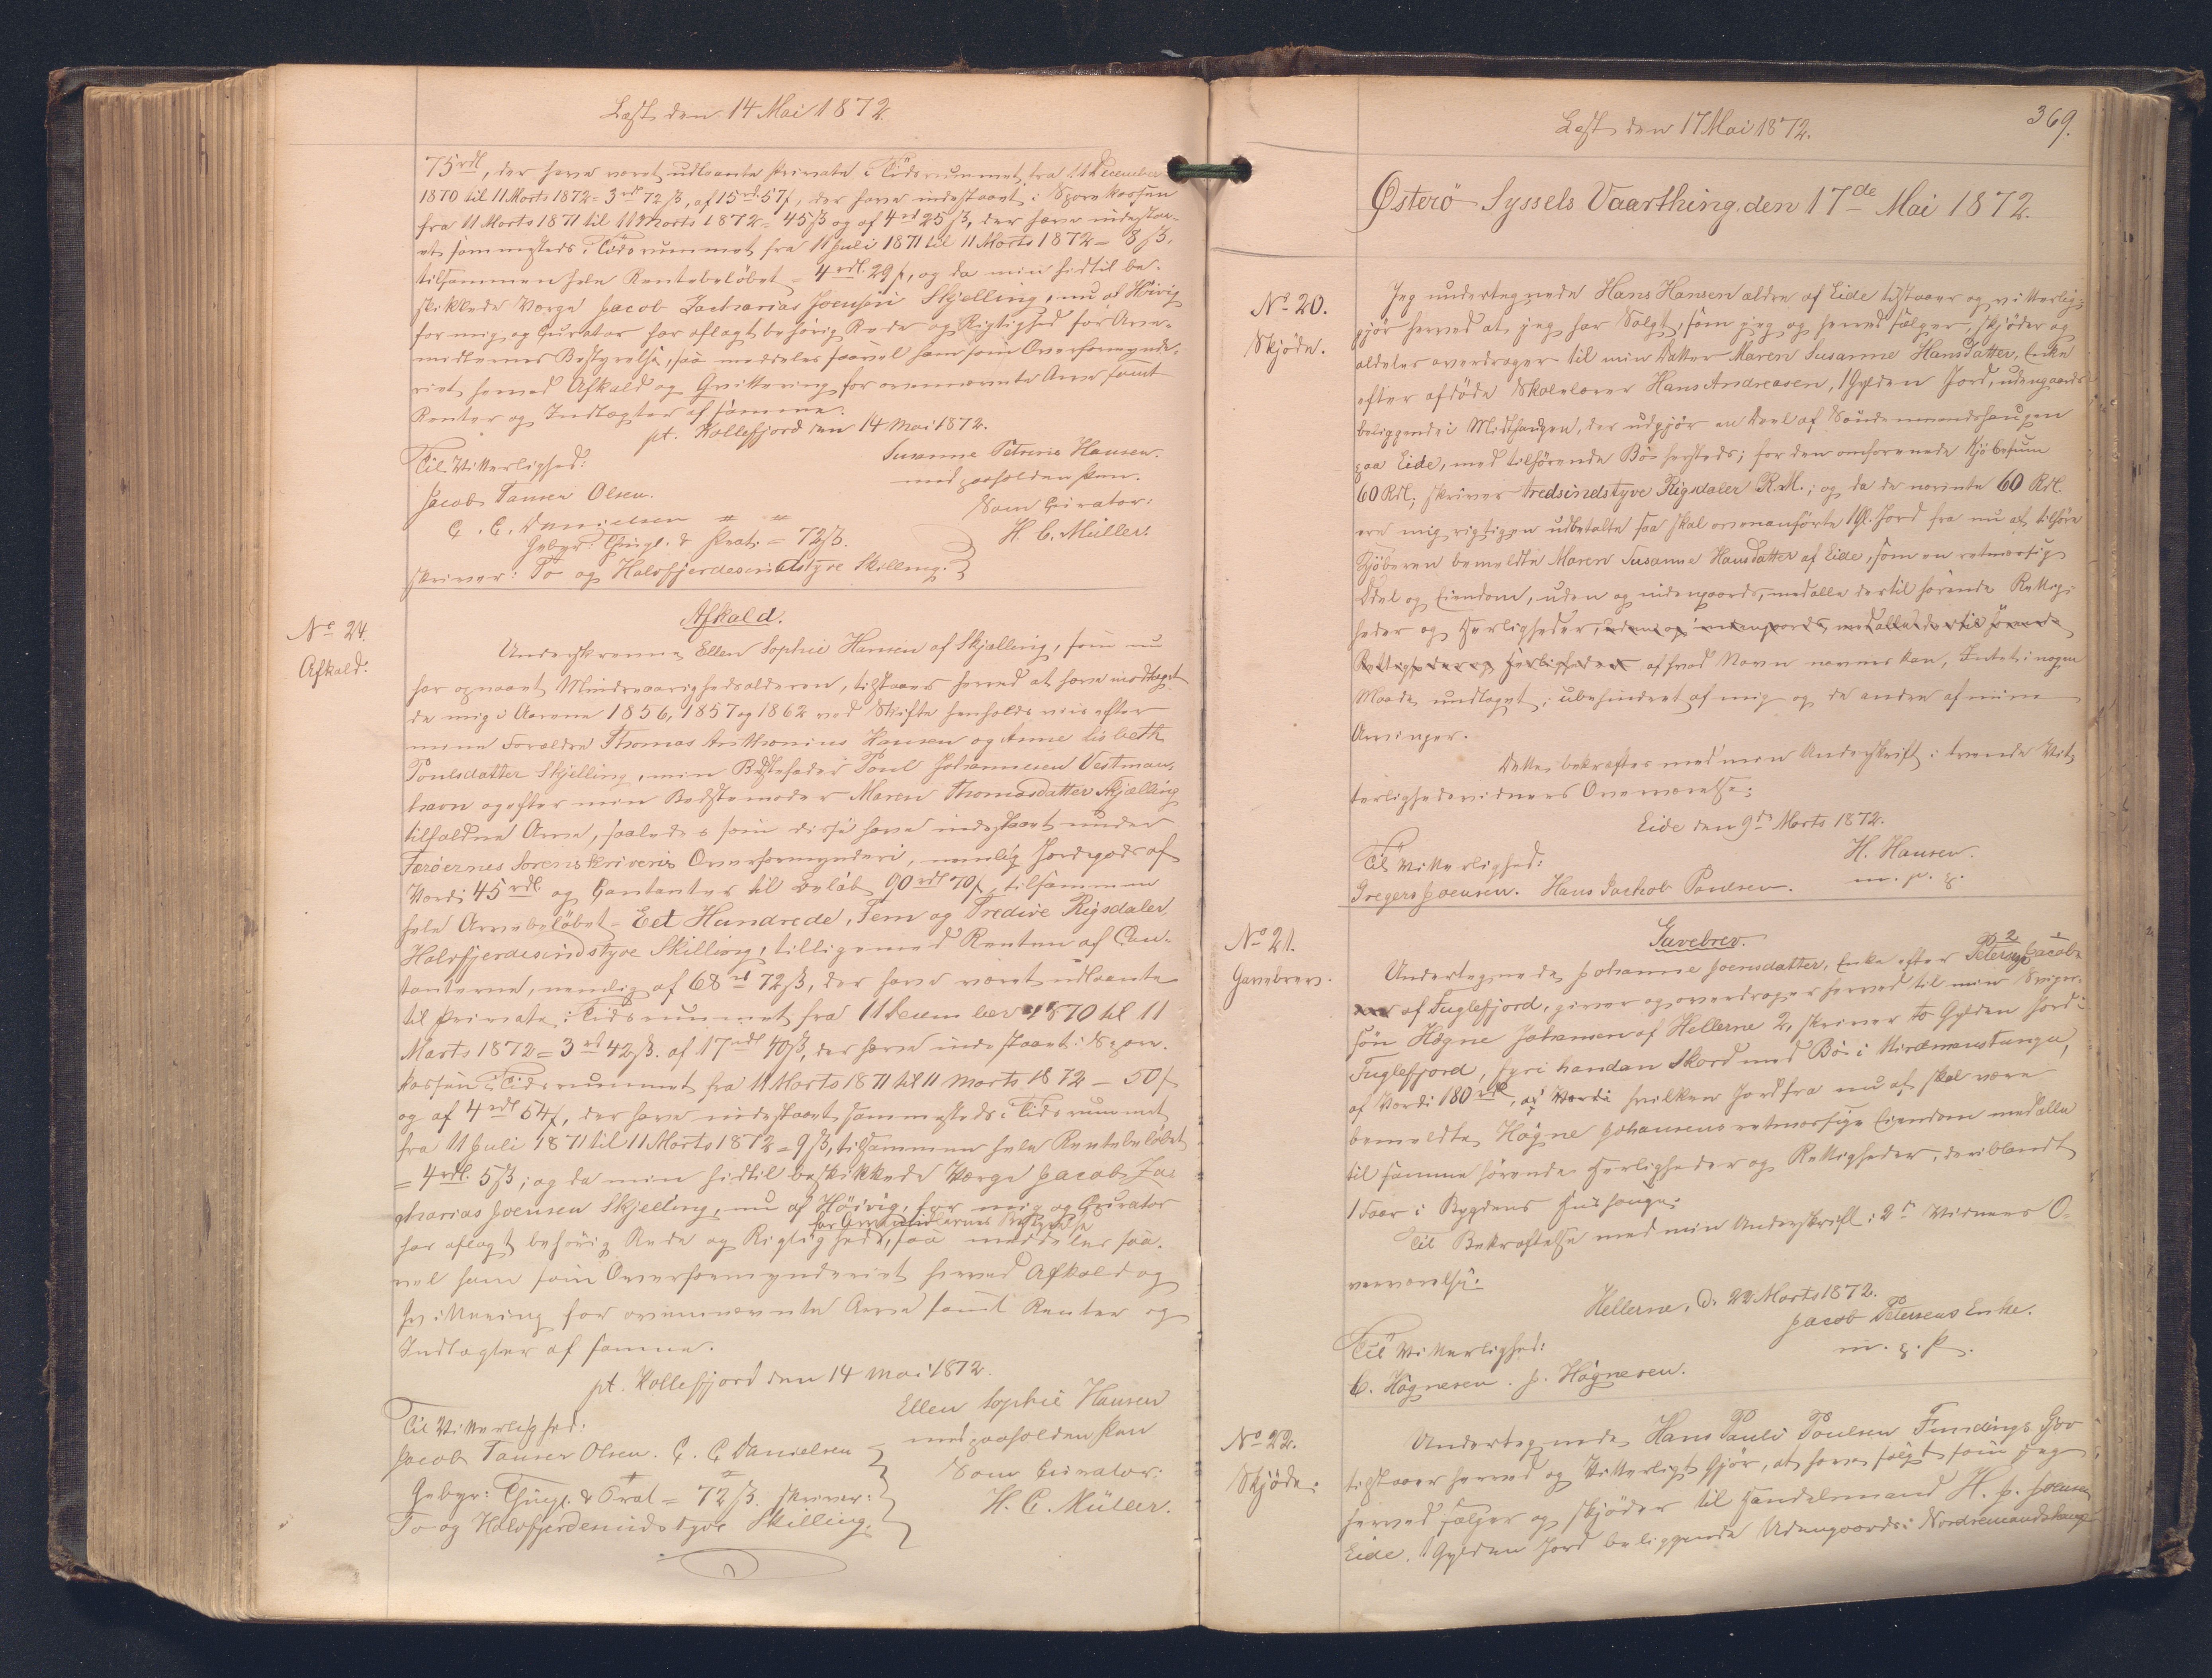 Læst den 14 Mai 1872.
75 rdl, der have været udlaante private i Tidsrummet fra 11 December
1870 til 11 Marts 1872 = 3 rdl 72 ß, af 15 rd 57 ß, der have indestaaet i Sparekassen
fra 11 Marts 1871 til 11 Marts 1872 = 45 ß og af 4 rd 25 ß, der have indestaa-
et sammesteds i Tidsrummet fra 11 Juli 1871 til 11 Marts 1872 = 8 ß,
tilsammen hele Rentebeløbet = 4 rdl. 29 ß, og da min hidtil be-
skikkede Værge Jacob Zacharias Joensen Skjelling, nu af Høivig
for mig og Curator har aflagt behørig Rede og Rigtighed for Arve-
midlernes Bestyrelse, saa meddeles saavel ham som Overformynde-
riet herved Afkald og Qvittering for ovennævnte Arv samt
Renter og Indtægter af samme.
pt. Kollefjord den 14 Mai 1872.
Til Vitterlighed:
Susanne Petrine Hansen.
med paaholden Pen.
Jacob Tauser Olsen.
Som Curator:
C. C. Danielsen
H. C. Müller.
Gebyr: Thingl. & Prot. = 72 ß.
skriver: To og Halvfjerdesindstyve Skilling.
No 24.
Afkald.
Afkald.
Underskrevne Ellen Sophie Hansen af Skjælling, som nu
har opnaaet Mindreaarighedsalderen, tilstaaer herved at have modtaget
de mig i Aarene 1856, 1857 og 1862 ved Skifte henholdsviis efter
mine Forældre Thomas Anthonius Hansen og Anne Lisbeth
Poulsdatter Skjelling, min Bedstefader Poul Johannesen Vestman-
havn og efter min Bedstemoder Maren Thomasdatter Skjælling
tilfaldne Arve, saaledes som disse have indestaaet under
Færøernes Sorenskriveris Overformynderi, nemlig Jordegods af
Værdi 45 rdl. og Contanter til Beløb 90 rdl 70 ß, tilsammen
hele Arvebeløbet = Eet Hundrede, Fem og Tredive Rigsdaler
Halvfjerdesindstyve Skilling, tilligemed Renten af Con-
tanterne, nemlig af 68 rd 72 ß, der have været udlaante
til private i Tidsrummet fra 11 December 1870 til 11
Marts 1872 = 3 rd 42 ß. af 17 rdl 40 ß, der have indestaaet i Spare-
kassen i Tidsrummet fra 11 Marts 1871 til 11 Marts 1872 = 50 ß
og af 4 rdl 54 ß, der have indestaaet sammesteds i Tidsrummet
fra 11 Juli 1871 til 11 Marts 1872 = 9 ß, tilsammen hele Rentebeløbet
= 4 rdl. 5 ß; og da min hidtil beskikkede Værge Jacob Za-
charias Joensen Skjelling, nu af Höivig, for mig og Curator
for Arvemidlernes Bestyrelse
har aflagt behørig Rede og Rigtighed, saa meddeles saa-
vel ham som Overformynderiet herved Afkald og
Qvittering for ovennævnte Arve samt Renter og
Indtægter af samme.
pt. Kollefjord den 14 Mai 1872.
Til Vitterlighed:
Ellen Sophie Hansen
Jacob Tauser Olsen. C. C. Danielsen
med paaholden Pen
Som Curator:
Gebyr: Thingl. & Prot = 72 ß. skriver:
H. C. Müller.
To og Halvfjerdesindstyve Skilling.
Læst den 17 Mai 1872.
369.
Østerö Syssels Vaarthing, den 17de Mai 1872.
No 20.
Skjöde.
Jeg undertegnede Hans Hansen ældre af Eide tilstaaer og vitterlig-
gjör herved at jeg har Solgt, som jeg og herved sælger, skjöder og
aldeles overdrager til min Datter Maren Susanne Hansdatter, Enke
efter afdöde Skolelærer Hans Andreasen, 1 Gylden Jord, udengaards
beliggende i Midthaugen, der udgjör en Deel af Söndremandshaugen
paa Eide, med tilhörende Bö hersteds; for den omforenede Kjöbesum
60 Rdl, skriver tredsindstyve Rigsdaler R.M.; og da de nævnte 60 Rdl.
ere mig rigtigen udbetalte saa skal ovenanförte 1 Gl. Jord fra nu af tilhöre
Kjöberen bemeldte Maren Susanne Hansdatter af Eide, som en retmæssig
Odel og Eiendom, uden og indengaards, med alle dertil hörende Rettig-
heder og Herligheder, uden og indengaards, med alle dertil hörende
Rettigheder og Herligheder af hvad Navn nævnes kan, Intet i nogen
Maade undtaget; ubehindret af mig og de andre af mine
Arvinger.
Dette bekræftes med min Underskrift i tvende Vit-
terlighedsvidners Overværelse.
Eide den 9de Marts 1872.
Til Vitterlighed:
H. Hansen.
Gregers Joensen. Hans Jachob Poulsen.
m. p. P.
No 21.
Gavebrev.
Gavebrev.
Undertegnede Johanne Joensdatter, Enke efter Peter Jacob
af Fuglefjord, giver og overdrager herved til min Sviger-
sön Högne Johansen af Hellerne 2, skriver to Gylden Jord i
Fuglefjord, fyri handan Skord med Bö i Niröimanstunga,
af Værdi 180 rdl, af Værdi hvilken Jord fra nu af skal være
bemeldte Högne Johansens retmæssige Eiendom med alle
til samme hörende Herligheder og Rettigheder, deriblandt
1 Faar i Bygdens Hushauge.
Til Bekræftelse med min Underskrift i 2de Vidners O-
verværelse.
Hellerne, d. 22 Marts 1872.
Jacob Petersens Enke.
Til Vitterlighed:
m. p. P.
C. Högnesen. J. Högnesen.
No 22.
Skjöde.
Undertegnede Hans Pauli Poulsen Fundings Gov
tilstaaer herved og Vitterligt Gjör, at have solgt som jeg
herved sælger og skjöder til Handelsmand H. J. Joensen
Eide, 1 Gylden Jord beliggende Udengaards i Nordremandshauge